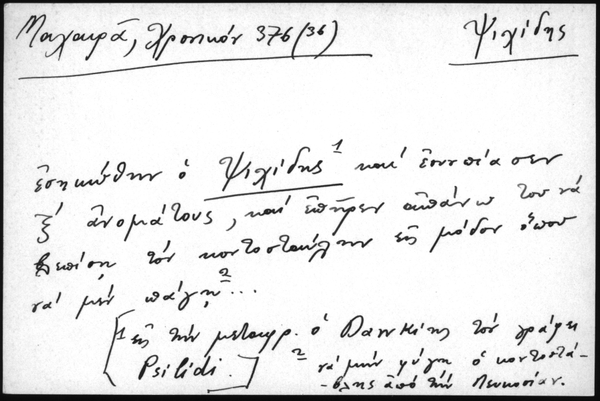 Μαχαιρᾶ, Χρονικόν 376 (36) Ψιλίδης
ἐσηκώθην ὁ Ψιλίδης¹ καὶ ἐσυνπίασεν
ξ' ἀνομάτους, καὶ ἐπῆρεν ἀπάνω του νὰ
βλεπίσῃ τὸν κοντοσταύλην εἰς μόδον ὅπου
νὰ μὲν πάγῃ²...
[1 εἰς τὴν μεταφρ. ὁ Dawkins τὸν γράφει
Psilidi.] 2 νὰ μὴν φύγῃ ὁ κοντοστά-
-βλης ἀπὸ τὴν Λευκοσίαν.